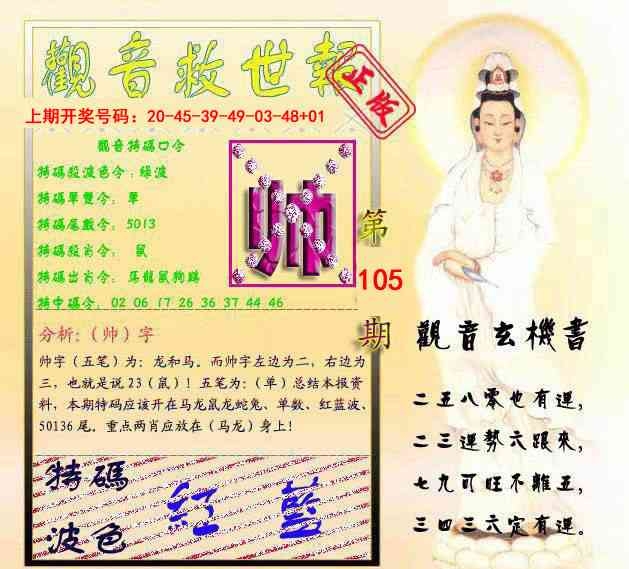 觀音救世報
正版
上期开奖号码：20-45-39-49-03-48+01
觀音特碼口令
特碼殺波色令：綠波
特碼單雙令：單
特碼尾數令：5013
特碼殺肖令：鼠
特碼出肖令：馬龍鼠狗
特中碼令：02 06 17 26 36 37 44 46
帅
第
105
期
分析:（帅）字
帅字（五笔）为：龙和马。而帅字左边为二，右边为
三，也就是说 23（鼠）！五笔为：（单）总结本报资
料，本期特码应该开在马龙鼠龙蛇兔、单数、红蓝波、
50136 尾。重点两肖应放在（马龙）身上！
特碼
波色
紅 藍
觀音玄機書
二五八零也有運，
二三運勢六跟來，
七九可旺不離五，
三四三六定有運。